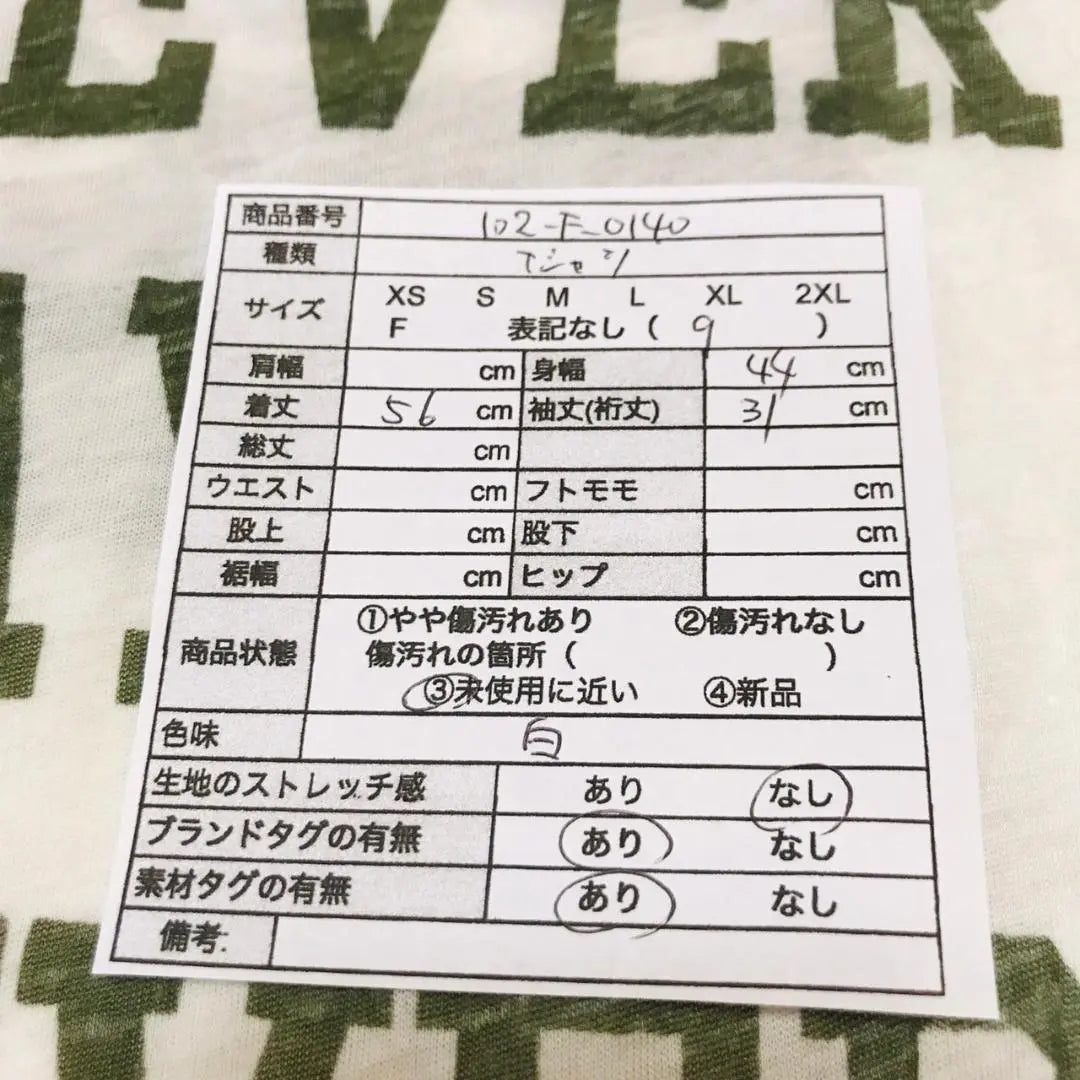 EVER
商品番号 102-F-0140
種類 Tシャツ
サイズ XS S M L XL 2XL
F 表記なし ( 9 )
肩幅 cm 身幅 44 cm
着丈 56 cm 袖丈(裄丈) 31 cm
総丈 cm
ウエスト cm フトモモ cm
股上 cm 股下 cm
裾幅 cm ヒップ cm
商品状態 ①やや傷汚れあり ②傷汚れなし
傷汚れの箇所 ( )
③未使用に近い ④新品
色味 白
生地のストレッチ感 あり なし
ブランドタグの有無 あり なし
素材タグの有無 あり なし
備考: